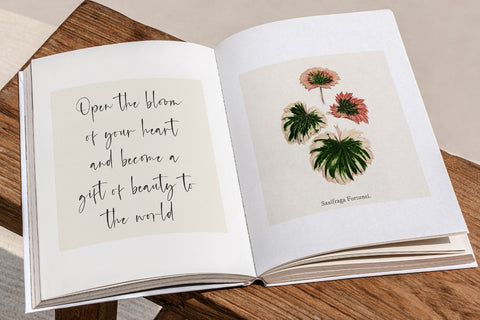 Open the bloom
of your heart
and become a
gift of beauty to
the world
Saxifraga Fortunei.